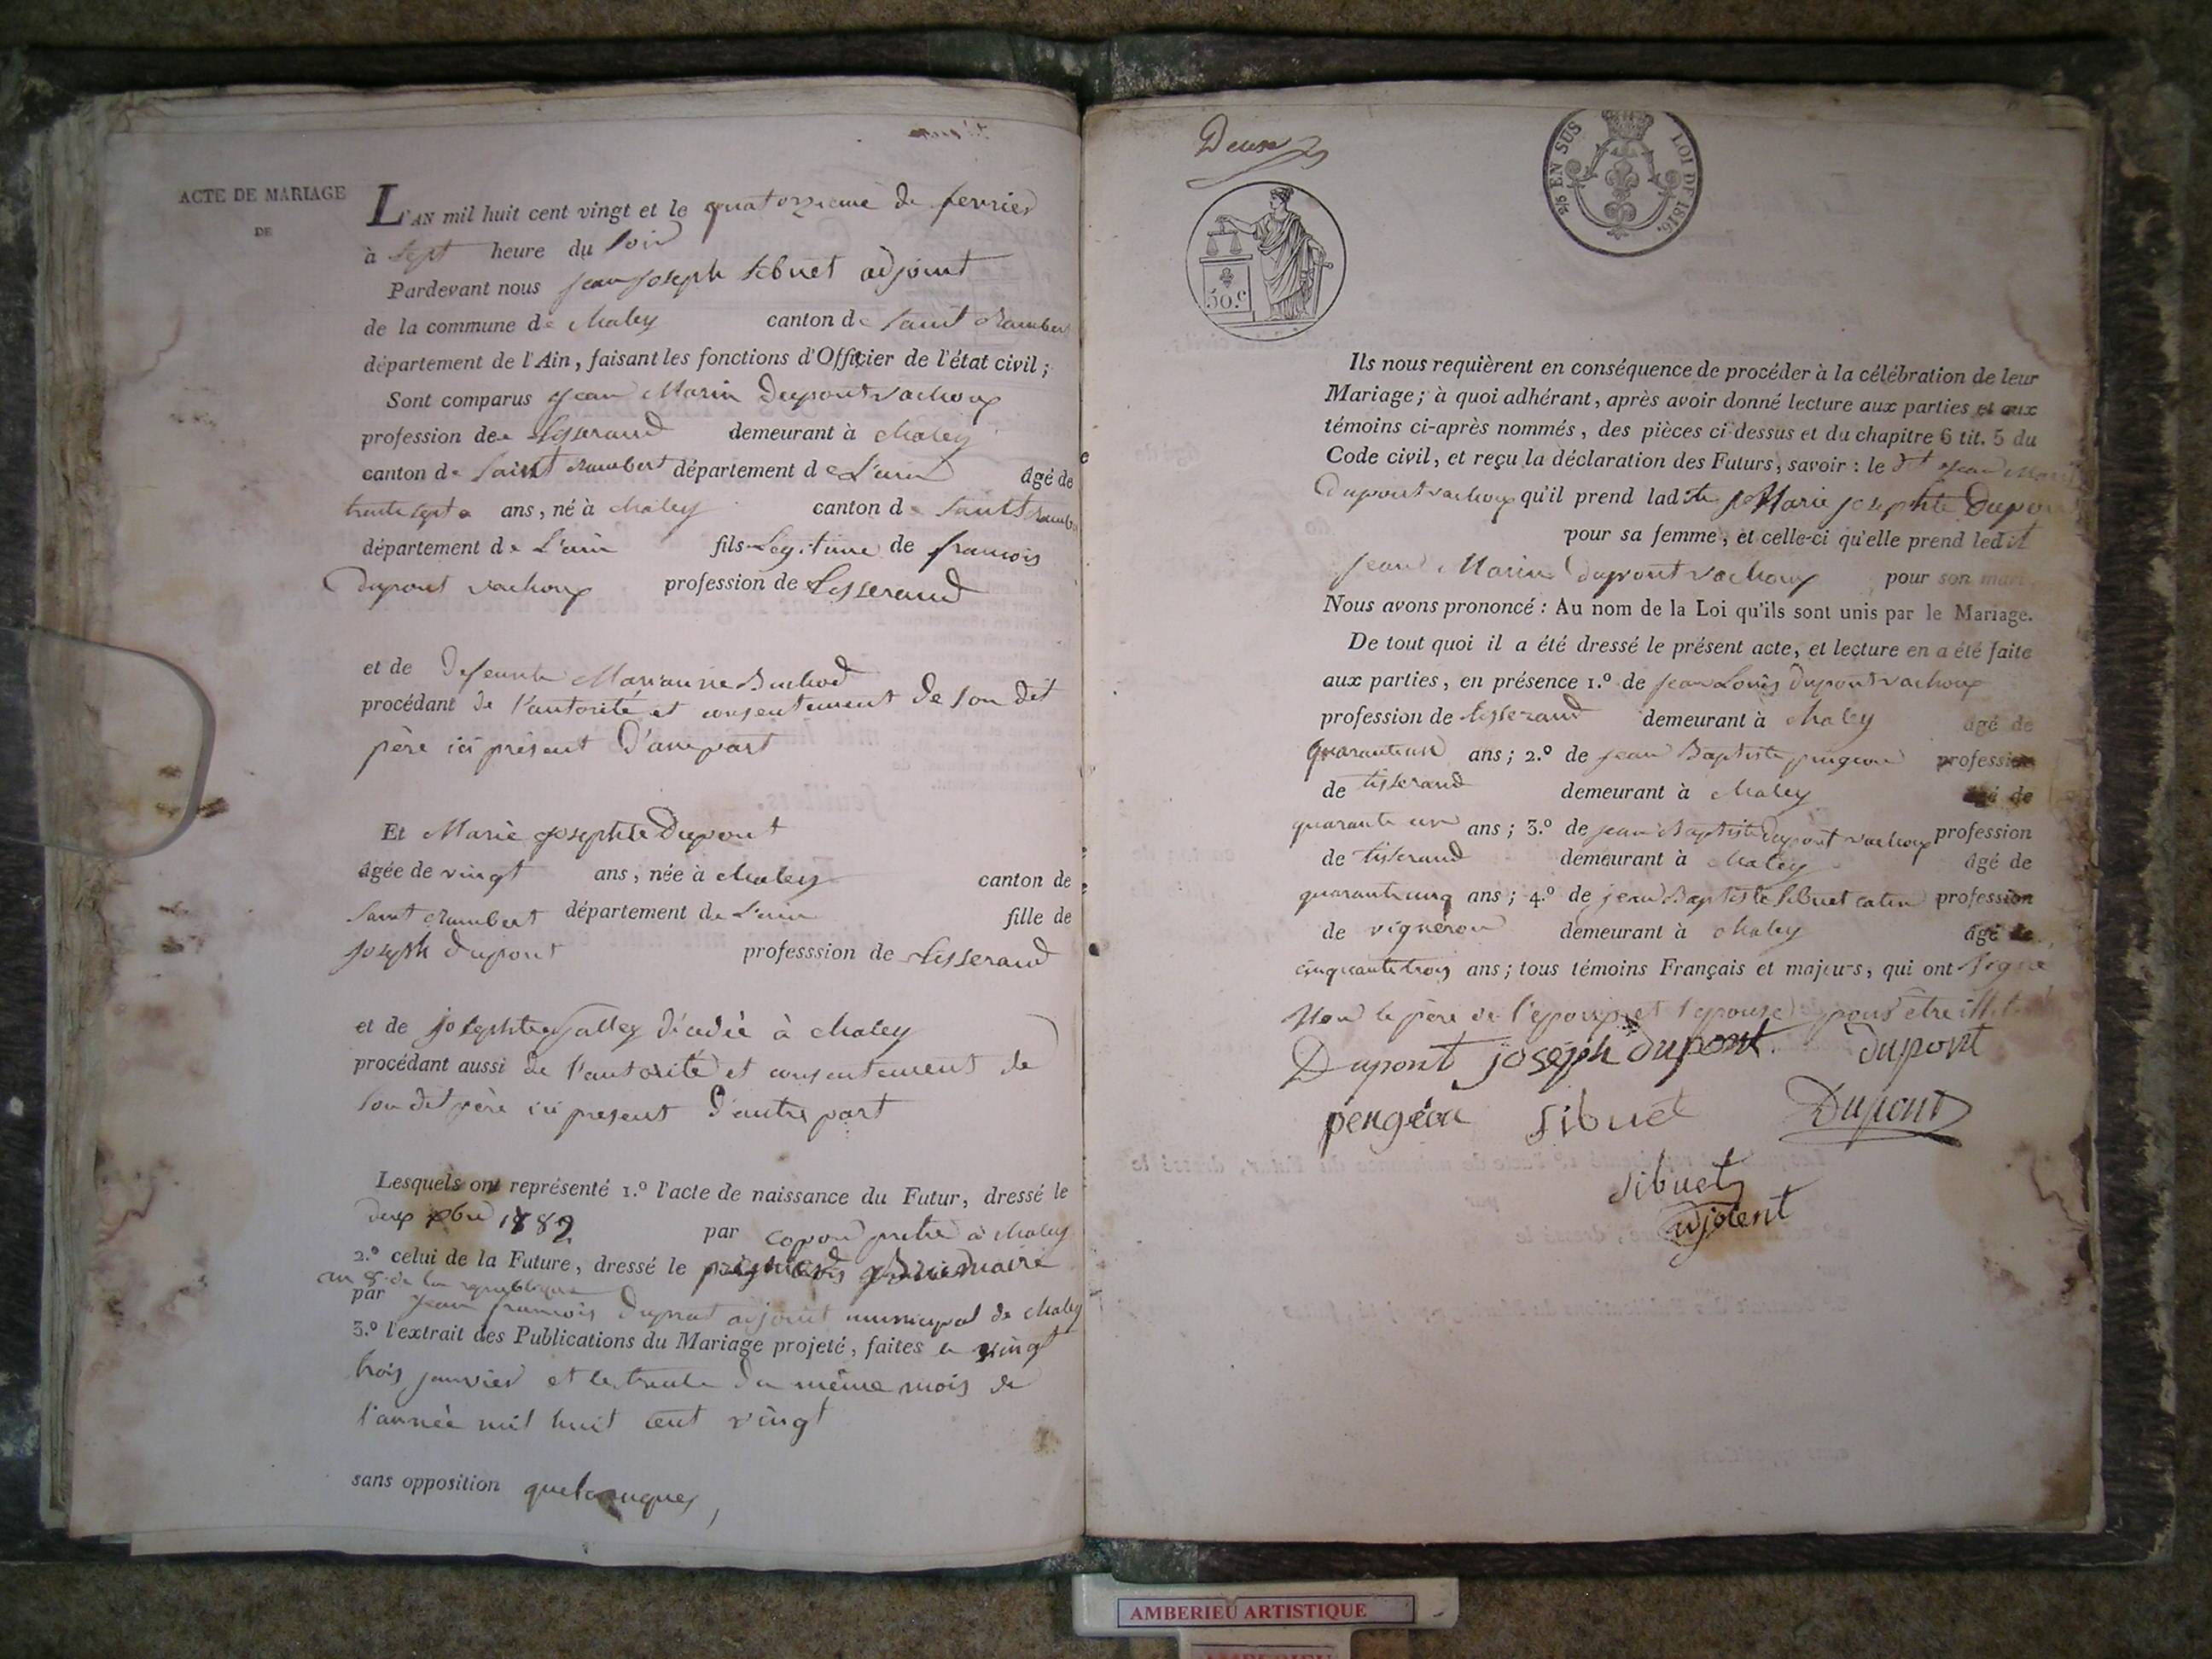 ACTE DE MARIAGE
DE
L'AN mil huit cent vingt et le quatorzieme de fevrier
à sept heure du soir
Pardevant nous jean joseph sibuet adjoint
de la commune de chaley canton de saint Rambert
département de l'Ain, faisant les fonctions d'Officier de l'état civil;
Sont comparus jean Marin Dupont vachoux
profession de tisserand demeurant à chaley
canton de saint Rambert département de L'ain âgé de
trente sept ans, né à chaley canton de saint Rambe
département de L'ain fils Legitime de francois
dupont vachoux profession de tisserand
et de defeunte Marianne Buchod
procédant de l'autorité et consentement de son dit
père ici présent d'une part
Et Marie josephte Dupont
âgée de vingt ans, née à chaley canton de
saint Rambert département de L'ain fille de
joseph dupont professsion de tisserand
et de josephte Galley décédée à chaley
procédant aussi de l'autorité et consentement de
son dit père ici present d'autre part
Lesquels ont représenté 1.º l'acte de naissance du Futur, dressé le
deux par copon pretre à chaley
2.º celui de la Future, dressé le brumaire
an 8 de la republique
par jean francois dupont adjoint municipal de chaley
3.º l'extrait des Publications du Mariage projeté, faites le vingt
trois janvier et le trente du même mois de
l'année mil huit cent vingt
sans opposition quelconques,
Deux
50.c
2/5 EN SUS LOI DE 1816.
Ils nous requièrent en conséquence de procéder à la célébration de leur
Mariage; à quoi adhérant, après avoir donné lecture aux parties et aux
témoins ci-après nommés, des pièces ci-dessus et du chapitre 6 tit. 5 du
Code civil, et reçu la déclaration des Futurs, savoir: le dit jean Marin
Dupont vachoux qu'il prend ladite Marie josephte Dupon
pour sa femme, et celle-ci qu'elle prend ledit
jean Marin dupont vachoux pour son mari
Nous avons prononcé: Au nom de la Loi qu'ils sont unis par le Mariage.
De tout quoi il a été dressé le présent acte, et lecture en a été faite
aux parties, en présence 1.º de jean Louis dupont vachoux
profession de tisserand demeurant à chaley âgé de
quarante un ans; 2.º de jean Baptiste pingeon profession
de tisserand demeurant à chaley âgé de
quarante un ans; 3.º de jean Baptiste dupont vachoux profession
de tisserand demeurant à chaley âgé de
quarante cinq ans; 4.º de jean Baptiste sibuet catin profession
de vigneron demeurant à chaley âgé de
cinquante trois ans; tous témoins Français et majeurs, qui ont signé
Non le père de l'epoux et l'epouse pour être
Dupont joseph dupont dupont
pengeon sibuet Dupont
sibuet
adjoient
AMBERIEU ARTISTIQUE
AMBERIEU